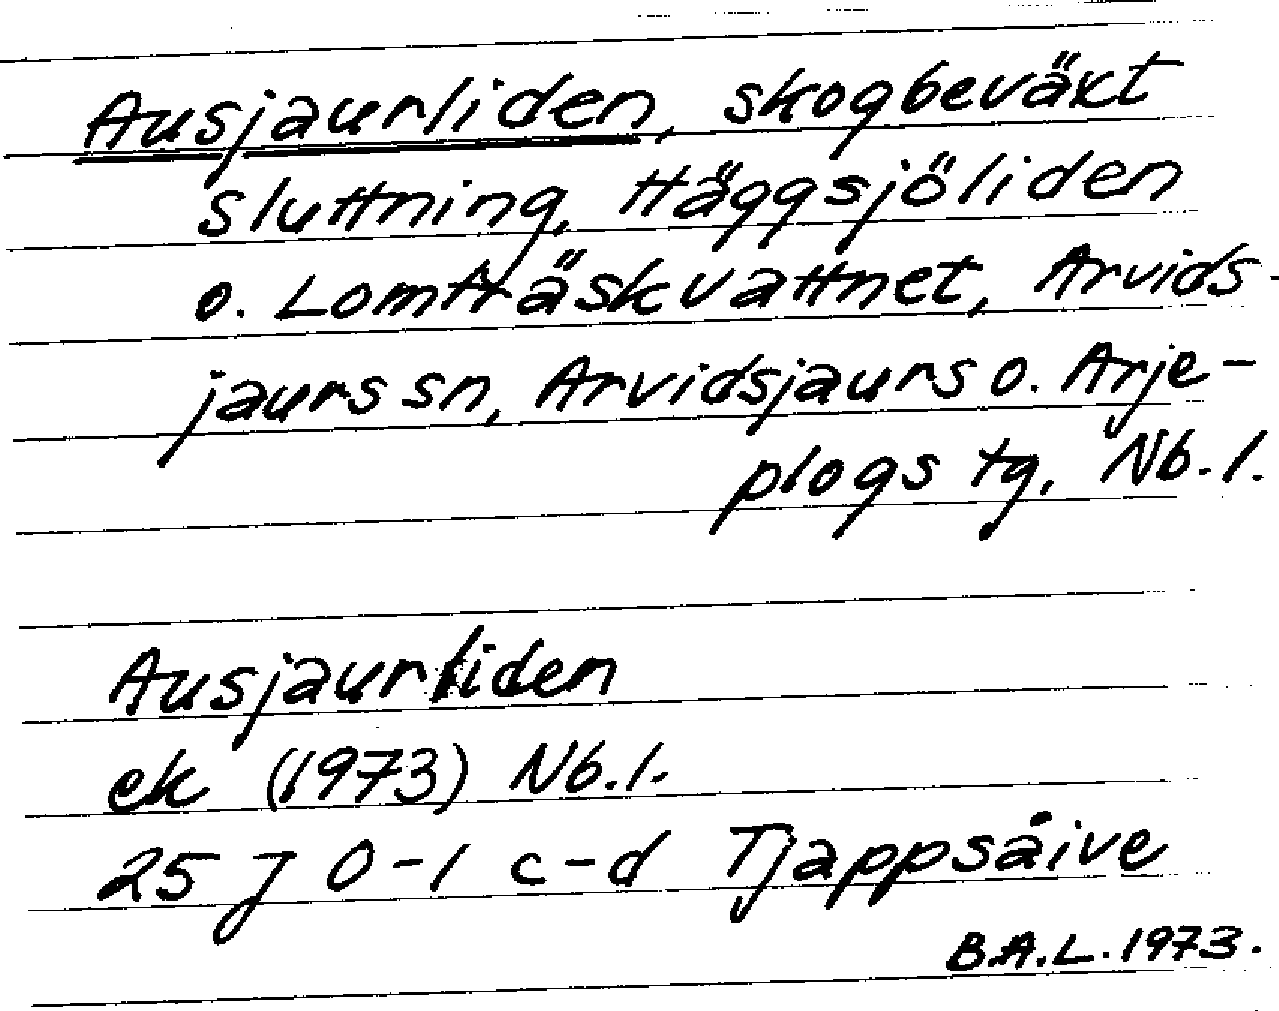 Ausjaurliden, skogbeväxt
sluttning, Häggsjöliden
o. Lomträskvattnet, Arvids-
jaurs sn, Arvidsjaurs o. Arje-
plogs tg, Nb. l.
Ausjaurliden
ek (1973) Nb. l.
25 J 0-1 c-d Tjappsåive
B.A.L. 1973.